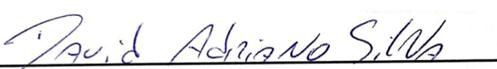 David Adriano Silva